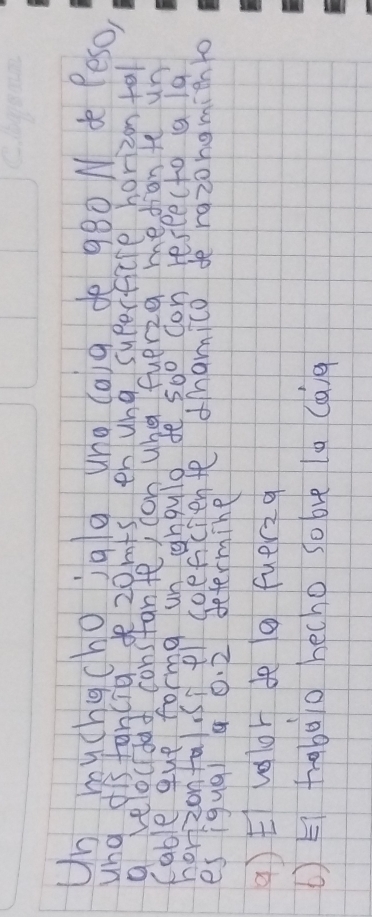 Un muchacho jala una caja de 980 N de Peso,
una distancia de 20mts en una superficie horizontal
a velocidad constante, con una fuerza mediante un
cable que forma un ángulo de 50o con respecto a la
horizontal. Si el coeficiente dinamico de razonamiento
es igual a 0.2 determine
a) El valor de la fuerza
b) El trabajo hecho sobre la caja